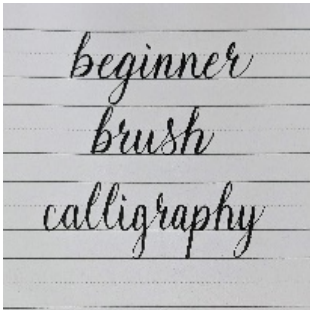 beginner
brush
calligraphy